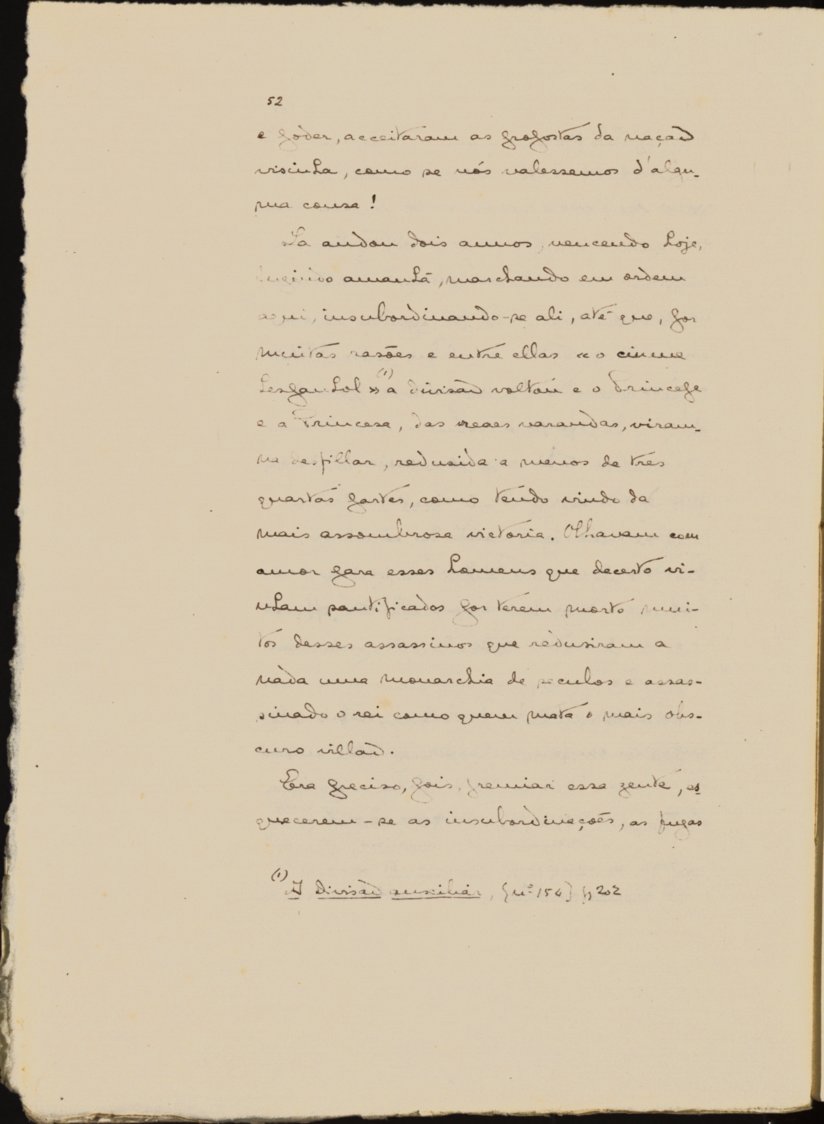 52
e poder, acceitaram as propostas da nação
visinha, como se nós valessemos d'algu-
ma cousa!
La andou dois annos, vencendo hoje,
fugindo amanhã, marchando em ordem
aqui, insubordinando-se ali, até que, por
muitas rasões e entre ellas « o ciume
hespanhol »(1) a divisão voltou e o Principe
e a Princesa, das reaes varandas, viram-
na desfillar, redusida a menos de tres
quartas partes, como tendo vindo da
mais assombrosa victoria. Olhavam com
amor para esses homens que decerto vi-
nham santificados por terem morto mui-
tos desses assassinos que redusiram a
nada uma monarchia de seculos e assas-
sinado o rei como quem mata o mais obs-
curo villão.
Era preciso, pois, premiar essa gente, es
quecerem-se as insubordinações, as fugas
(1) A Divisão auxiliar, {nº 154} p 202